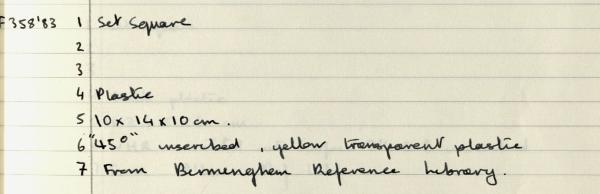 F358'83 1 Set Square
2
3
4 Plastic
5 10 x 14 x 10 cm.
6 "45°" inscribed, yellow transparent plastic
7 From Birmengham Reference Library.